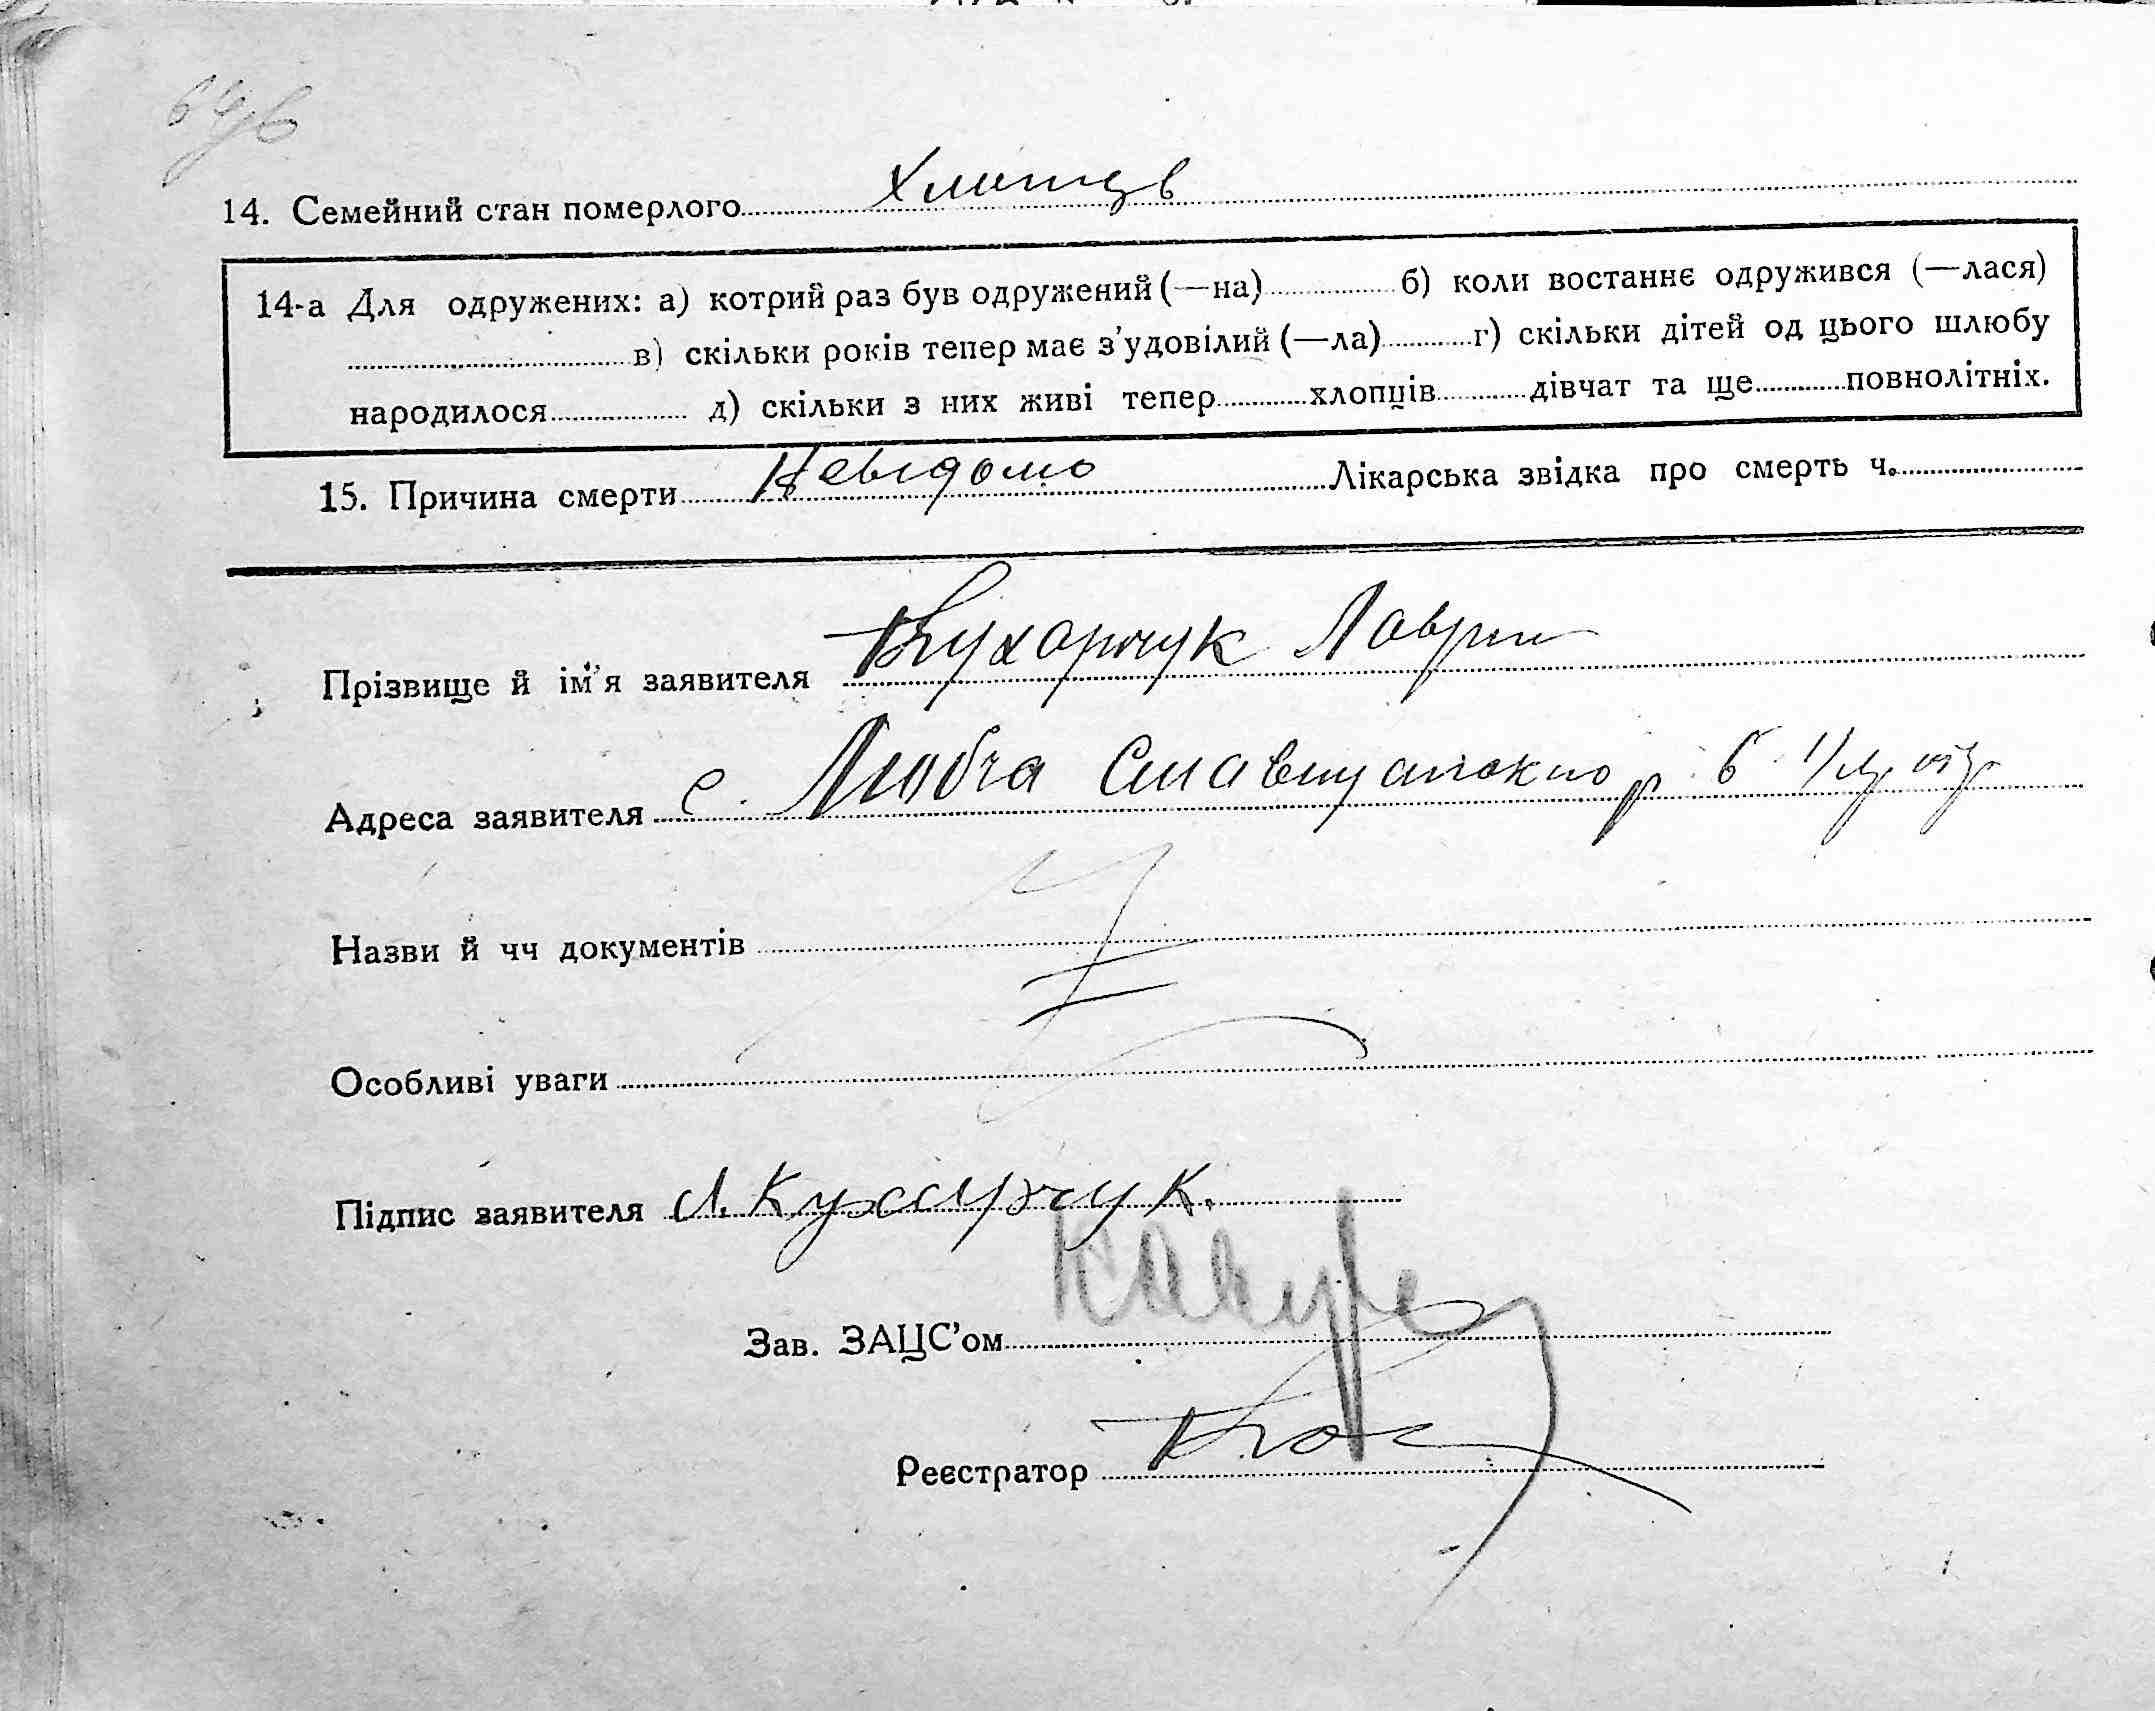 64зв
14. Семейний стан померлого Хлопець
14-а Для одружених: а) котрий раз був одружений (—на) б) коли востаннє одружився (—лася)
в) скільки років тепер має з'удовілий (—ла) г) скільки дітей од цього шлюбу
народилося д) скільки з них живі тепер хлопців дівчат та ще повнолітніх.
15. Причина смерти Невідомо Лікарська звідка про смерть ч.
Прізвище й ім'я заявителя Кухарчук Лаврин
Адреса заявителя с.
Назви й чч документів
Особливі уваги
Підпис заявителя Л. Кухарчук.
Зав. ЗАЦС'ом
Реєстратор